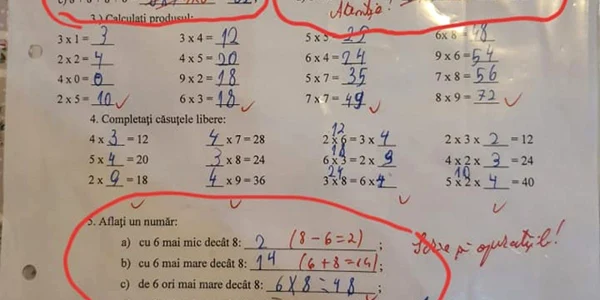 Atenție!
3.) Calculați produsul:
3 x 1 = 3 3 x 4 = 12 5 x 5 = 25 6x 8 = 48
2 x 2 = 4 4 x 5 = 20 6 x 4 = 24 9 x 6 = 54
4 x 0 = 0 9 x 2 = 18 5 x 7 = 35 7 x 8 = 56
2 x 5 = 10 6 x 3 = 18 7 x 7 = 49 8 x 9 = 72
4. Completați căsuțele libere:
4 x 3 = 12 4 x 7 = 28 12 2 x 6 = 3 x 4 2 x 3 x 2 = 12
5 x 4 = 20 3 x 8 = 24 18 6 x 3 = 2 x 9 4 x 2 x 3 = 24
2 x 9 = 18 4 x 9 = 36 24 3 x 8 = 6 x 4 10 5 x 2 x 4 = 40
5. Aflați un număr:
a) cu 6 mai mic decât 8: 2 (8 - 6 = 2) ;
b) cu 6 mai mare decât 8: 14 (6 + 8 = 14) ;
c) de 6 ori mai mare decât 8: 6 X 8 = 48 ;
Scrie și operațiile!